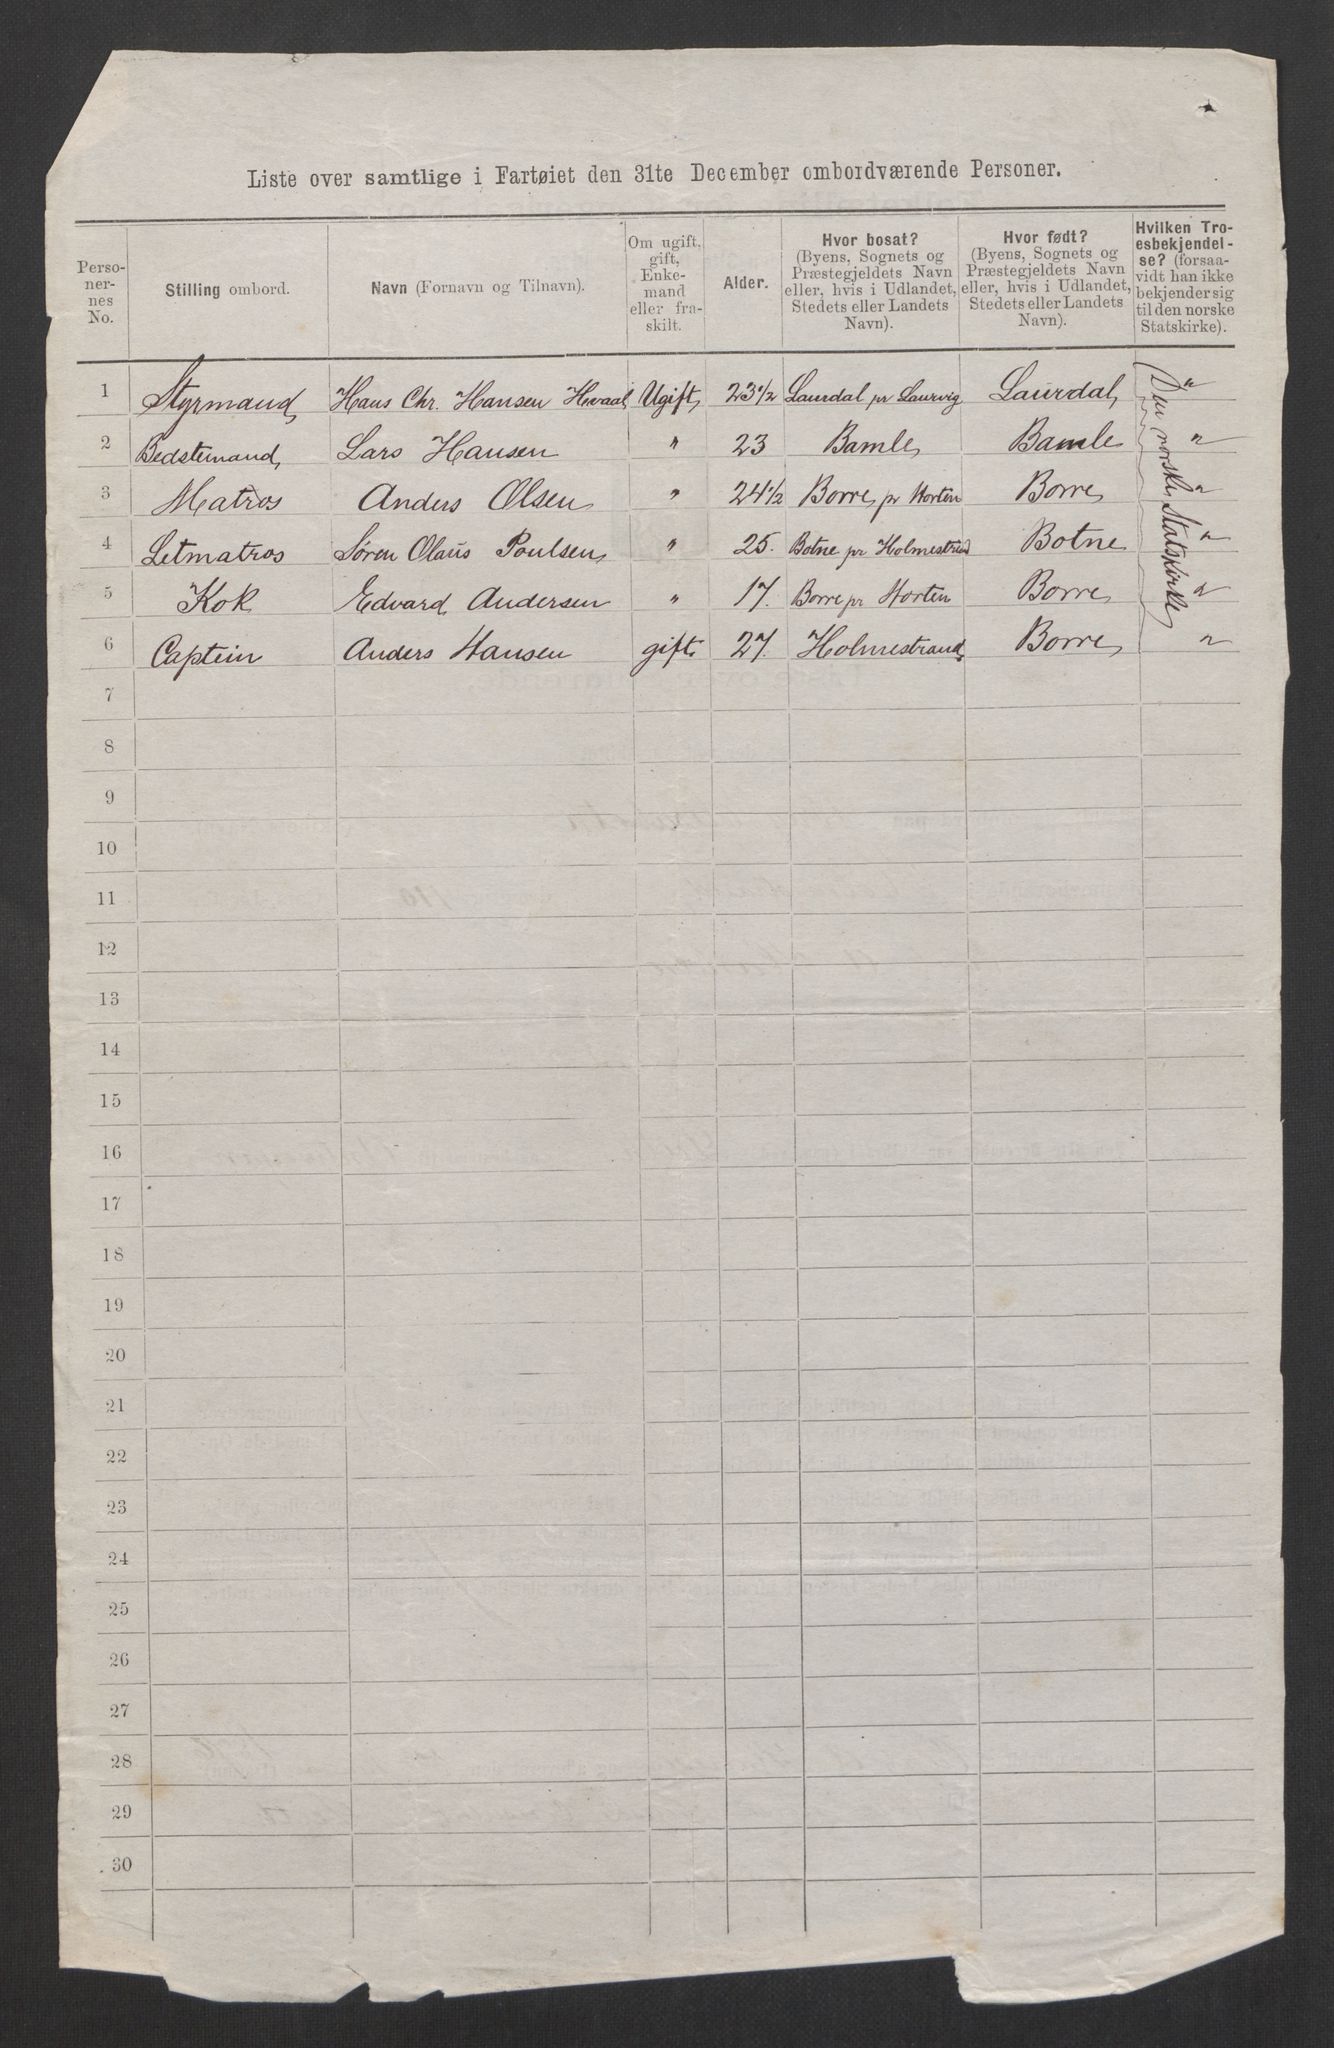 Liste over samtlige i Fartøiet den 31te December ombordværende Personer.
Perso-
ner-
nes
No.
Stilling ombord.
Navn (Fornavn og Tilnavn).
Om ugift,
gift,
Enke-
mand
eller fra-
skilt.
Alder.
Hvor bosat?
(Byens, Sognets og
Præstegjeldets Navn
eller, hvis i Udlandet,
Stedets eller Landets
Navn).
Hvor født?
(Byens, Sognets og
Præstegjeldets Navn
eller, hvis i Udlandet,
Stedets eller Landets
Navn).
Hvilken Tro-
esbekjendel-
se? (forsaa-
vidt han ikke
bekjender sig
til den norske
Statskirke).
1 Styrmand Hans Chr. Hansen Hvaal Ugift 23 1/2 Laurdal pr Laurvig Laurdal "
2 Bedstemand Lars Hansen " 23 Bamle Bamle "
3 Matros Anders Olsen " 24 1/2 Borre pr Horten Borre "
4 Letmatros Søren Olaus Poulsen " 25. Botne pr Holmestrand Botne "
5 Kok Edvard Andersen " 17. Borre pr Horten Borre "
6 Captein Anders Hansen gift 27. Holmestrand Borre "
Den norske Statskirke
7
8
9
10
11
12
13
14
15
16
17
18
19
20
21
22
23
24
25
26
27
28
29
30